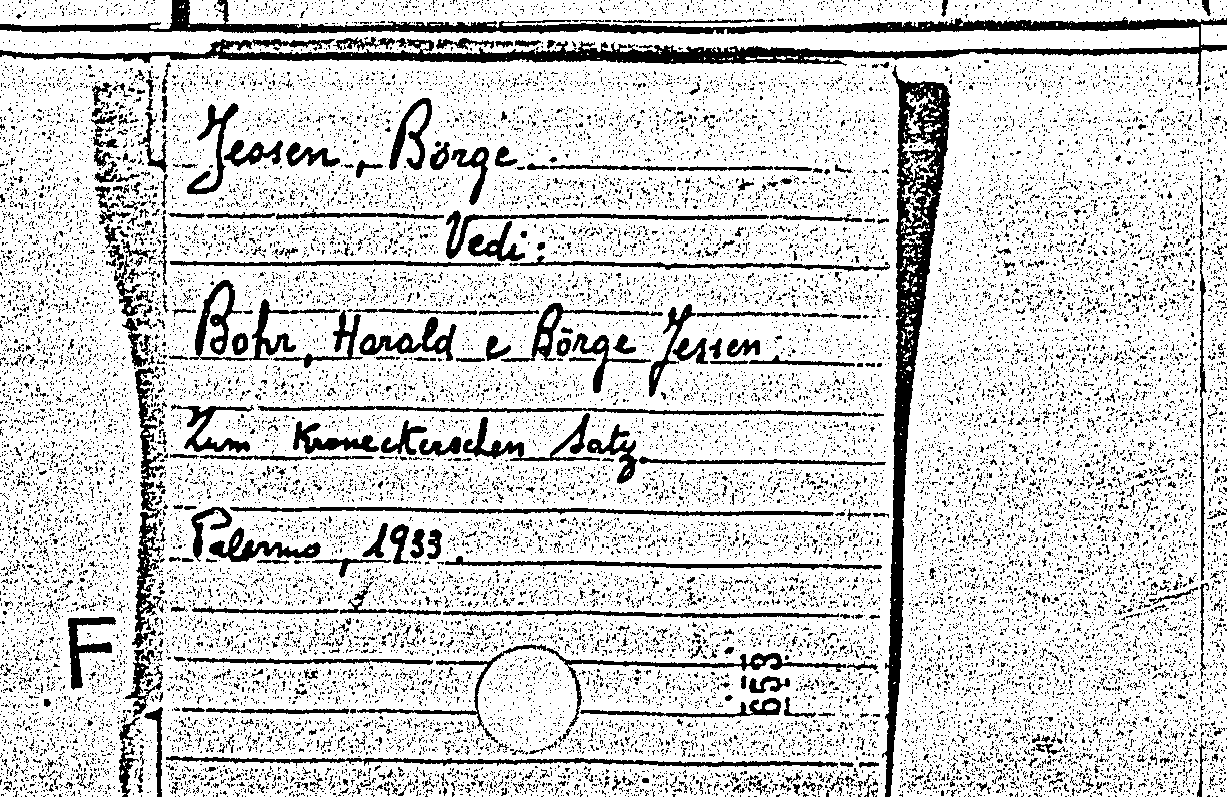 Jessen, Börge.
Vedi:
Bohr, Harald e Börge Jessen.
Zum Kroneckerschen Satz.
Palermo, 1933.
F